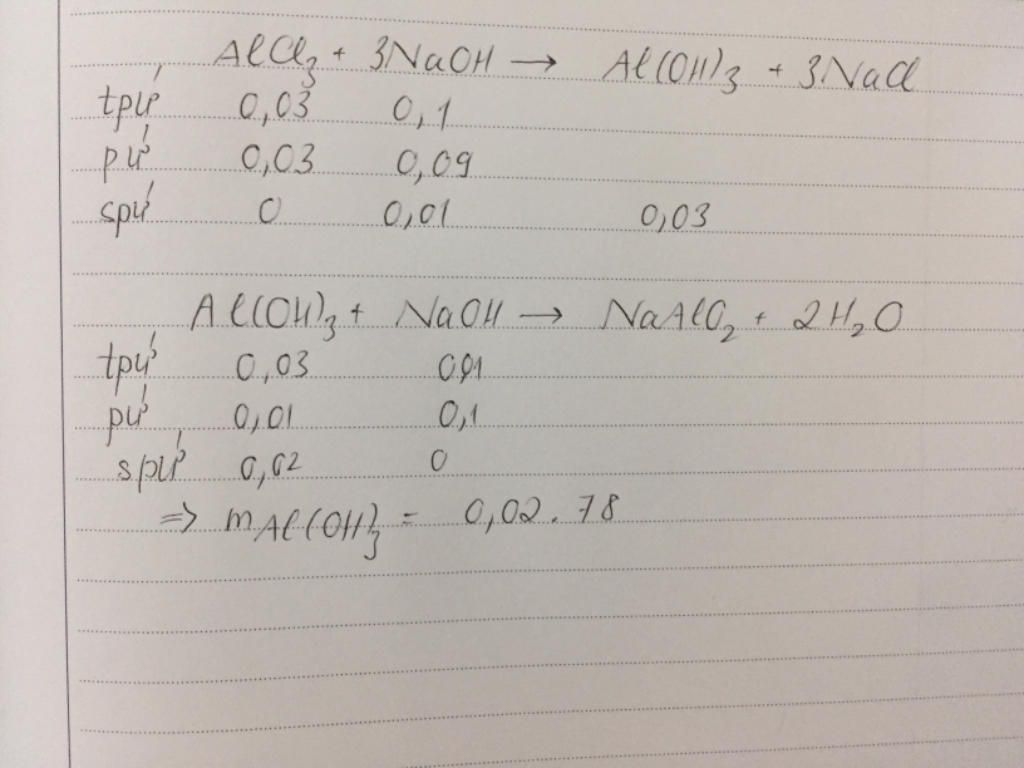 AlCl₃ + 3NaOH → Al(OH)₃ + 3NaCl
tpứ 0,03 0,1
pứ 0,03 0,09
spứ 0 0,01 0,03
Al(OH)₃ + NaOH → NaAlO₂ + 2H₂O
tpứ 0,03 0,01
pứ 0,01 0,1
spứ 0,02 0
=> mAl(OH)₃ = 0,02.78